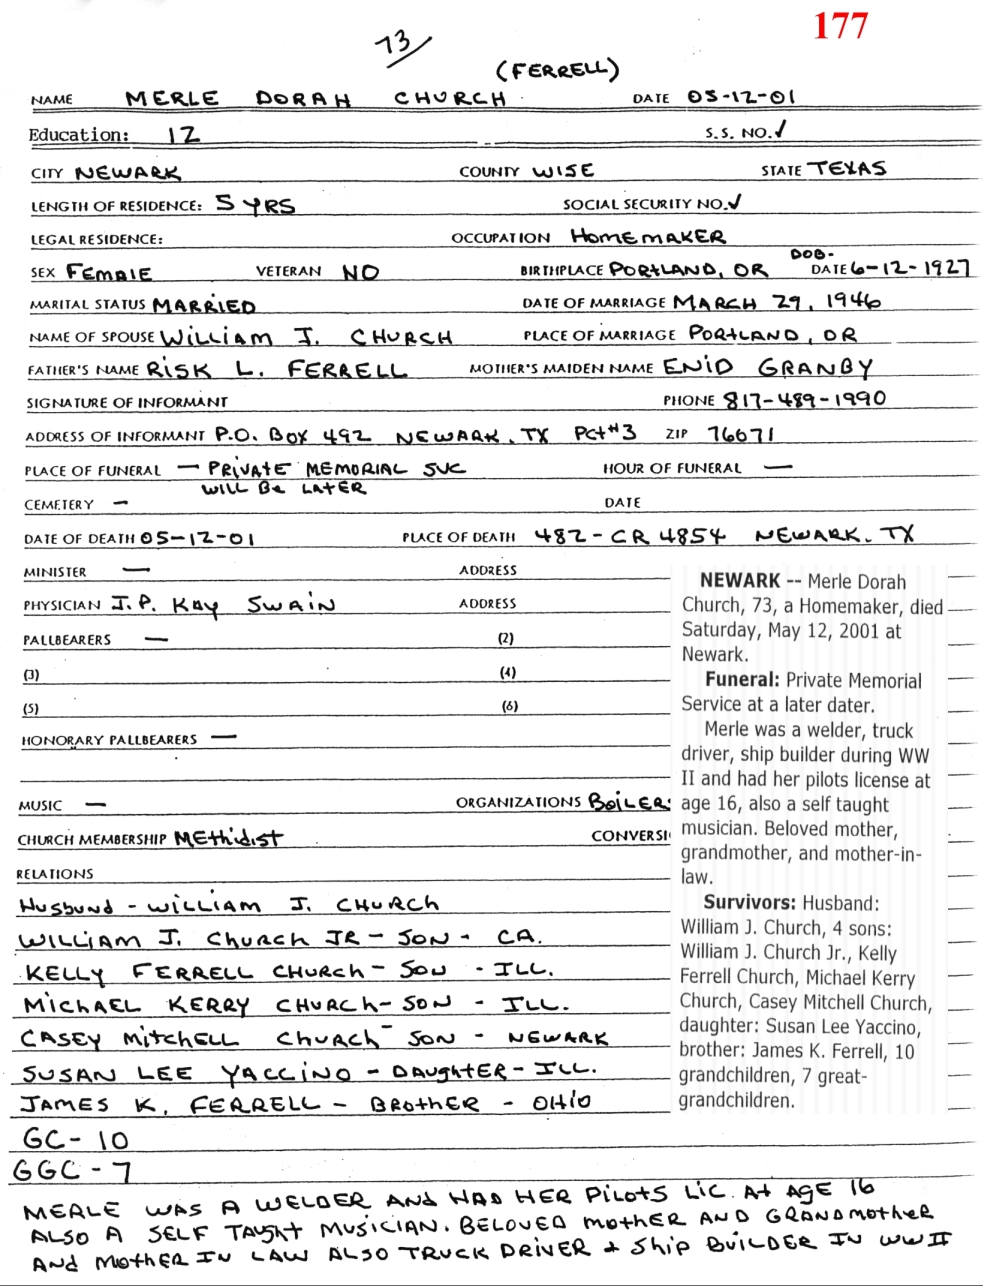 177
73/
(FERRELL)
NAME MERLE DORAH CHURCH DATE 05-12-01
Education: 12 S.S. NO.✓
CITY NEWARK COUNTY WISE STATE TEXAS
LENGTH OF RESIDENCE: 5 YRS SOCIAL SECURITY NO.✓
LEGAL RESIDENCE: OCCUPATION HOMEMAKER
SEX FEMALE VETERAN NO BIRTHPLACE PORTLAND, OR DOB- DATE 6-12-1927
MARITAL STATUS MARRIED DATE OF MARRIAGE MARCH 29, 1946
NAME OF SPOUSE WILLIAM J. CHURCH PLACE OF MARRIAGE PORTLAND, OR
FATHER'S NAME RISK L. FERRELL MOTHER'S MAIDEN NAME ENID GRANBY
SIGNATURE OF INFORMANT PHONE 817-489-1990
ADDRESS OF INFORMANT P.O. BOX 492 NEWARK, TX PCt#3 ZIP 76071
PLACE OF FUNERAL — PRIVATE MEMORIAL SVC HOUR OF FUNERAL —
WILL BE LATER
CEMETERY — DATE
DATE OF DEATH 05-12-01 PLACE OF DEATH 482-CR 4854 NEWARK, TX
MINISTER — ADDRESS
PHYSICIAN J.P. KAY SWAIN ADDRESS
PALLBEARERS — (2)
(3) (4)
(5) (6)
HONORARY PALLBEARERS —
MUSIC — ORGANIZATIONS BOILER
CHURCH MEMBERSHIP MEthidist CONVERSI
RELATIONS
HUSBUND - WILLIAM J. CHURCH
WILLIAM J. CHURCH JR - SON - CA.
KELLY FERRELL CHURCH - SON - ILL.
MICHAEL KERRY CHURCH - SON - ILL.
CASEY MITCHELL CHURCH - SON - NEWARK
SUSAN LEE YACCINO - DAUGHTER - ILL.
JAMES K. FERRELL - BROTHER - OHIO
GC - 10
GGC - 7
MERLE WAS A WELDER AND HAD HER PILOTS LIC. At AGE 16
ALSO A SELF TAUGHT MUSICIAN. BELOVED MOTHER AND GRANDMOTHER
AND MOTHER IN LAW ALSO TRUCK DRIVER & SHIP BUILDER IN WW II
NEWARK -- Merle Dorah
Church, 73, a Homemaker, died
Saturday, May 12, 2001 at
Newark.
Funeral: Private Memorial
Service at a later dater.
Merle was a welder, truck
driver, ship builder during WW
II and had her pilots license at
age 16, also a self taught
musician. Beloved mother,
grandmother, and mother-in-
law.
Survivors: Husband:
William J. Church, 4 sons:
William J. Church Jr., Kelly
Ferrell Church, Michael Kerry
Church, Casey Mitchell Church,
daughter: Susan Lee Yaccino,
brother: James K. Ferrell, 10
grandchildren, 7 great-
grandchildren.